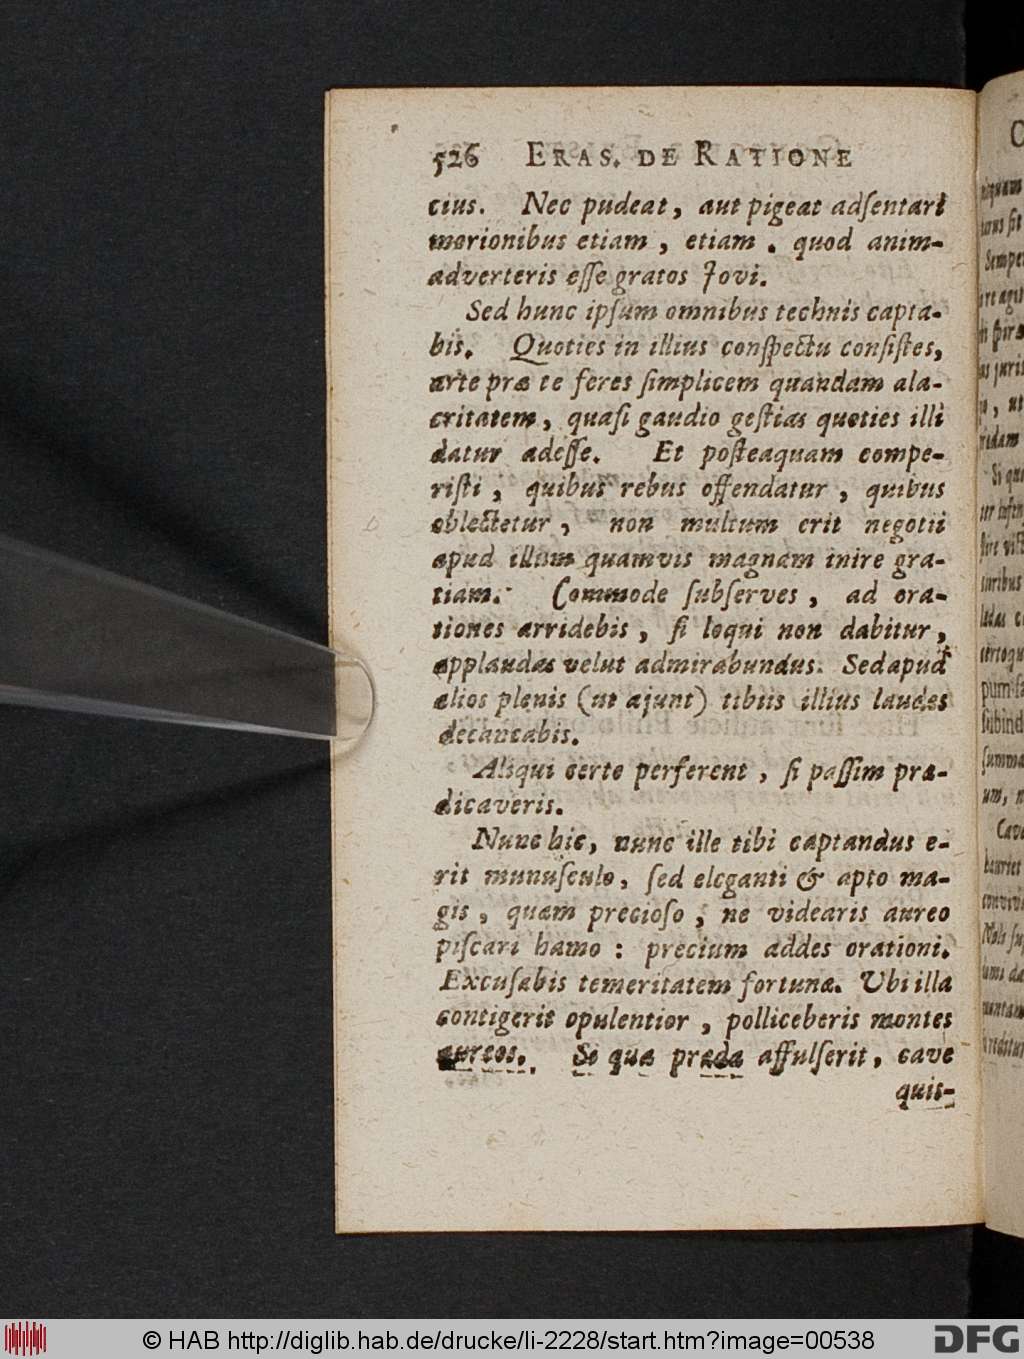 526 ERAS. DE RATIONE
cius. Nec pudeat, aut pigeat adſentari
morionibus etiam, etiam. quod anim-
adverteris eſſe gratos Jovi.
Sed hunc ipſum omnibus technis capta-
bis. Quoties in illius conſpectu conſiſtes,
arte præ te feres ſimplicem quandam ala-
critatem, quaſi gaudio geſtias quoties illi
datur adeſſe. Et poſteaquam compe-
riſti, quibus rebus offendatur, quibus
oblectetur, non multum erit negotii
apud illum quamvis magnam inire gra-
tiam. Commode ſubſerves, ad ora-
tiones arridebis, ſi loqui non dabitur,
applaudas velut admirabundus. Sed apud
alios plenis (ut ajunt) tibiis illius laudes
decantabis.
Aliqui certe perferent, ſi paſſim præ-
dicaveris.
Nunc hic, nunc ille tibi captandus e-
rit munuſculo, ſed eleganti & apto ma-
gis, quam precioſo, ne videaris aureo
piſcari hamo: precium addes orationi.
Excuſabis temeritatem fortunæ. Ubi illa
contigerit opulentior, polliceberis montes
aureos. Si qua præda affulſerit, cave
quis-
© HAB http://diglib.hab.de/drucke/li-2228/start.htm?image=00538
DFG